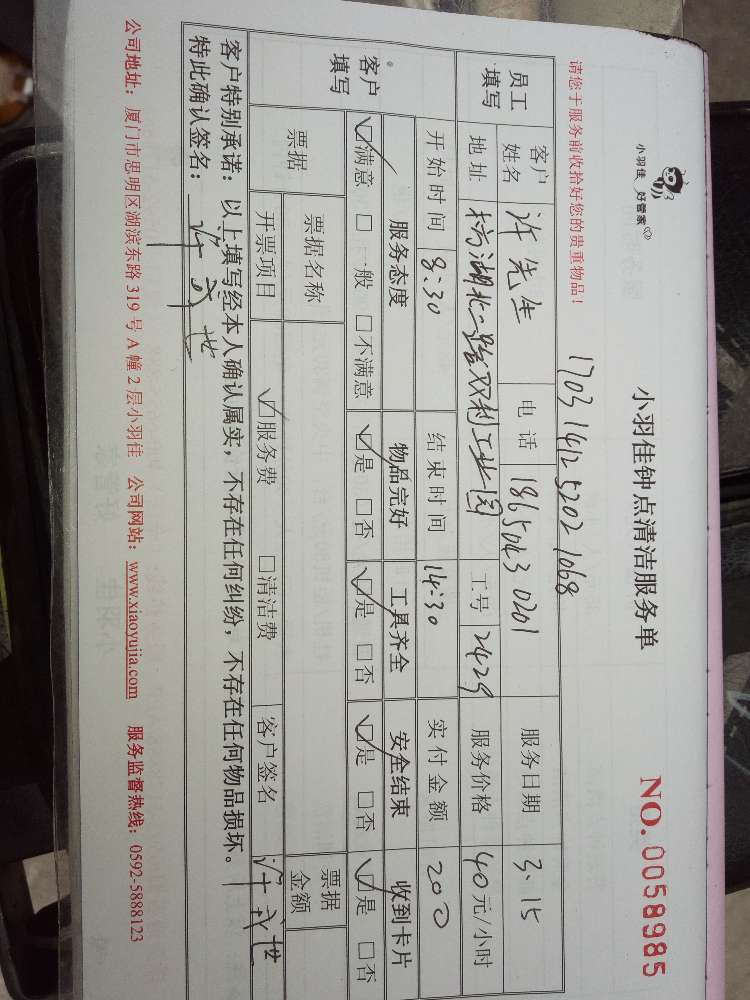 小羽佳 好管家
小羽佳钟点清洁服务单
NO. 0058985
请您于服务前收拾好您的贵重物品！
1703 1412 5202 1068
员工填写 客户姓名 许先生 电话 1865043 0201 服务日期 3.15
地址 枋湖北二路双利工业园 工号 2429 服务价格 40元/小时
开始时间 8:30 结束时间 14:30 实付金额 200
客户填写 服务态度 物品完好 工具齐全 安全结束 收到卡片
☑满意 □一般 □不满意 ☑是 □否 ☑是 □否 ☑是 □否 ☑是 □否
票据 票据名称 票据金额
开票项目 ☑服务费 □清洁费 客户签名 许
客户特别承诺：以上填写经本人确认属实，不存在任何纠纷，不存在任何物品损坏。
特此确认签名：许
公司地址：厦门市思明区湖滨东路 319 号 A 幢 2 层小羽佳 公司网站：www.xiaoyujia.com 服务监督热线：0592-5888123